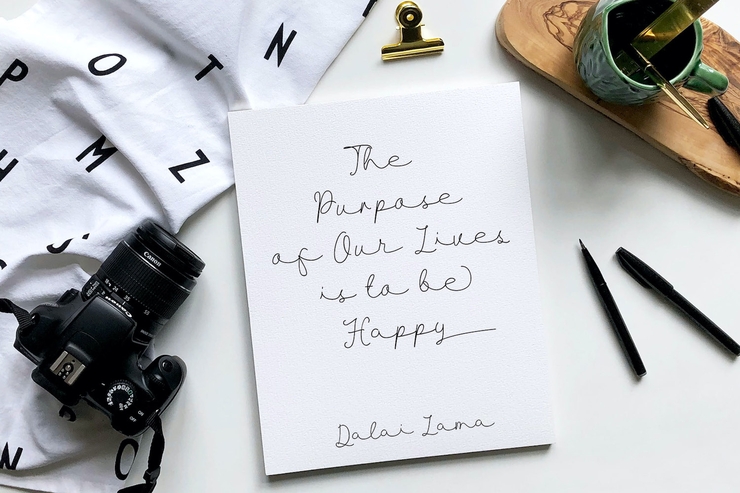 P O T N
H M Z
S
N O
Canon
ON
OFF
The
Purpose
of Our Lives
is to be
Happy
Dalai Lama